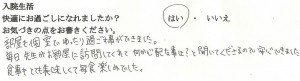 入院生活
快適にお過ごしになれましたか? はい ・ いいえ
お気づきの点をお書きください。
部屋も個室でゆったり過ごす事ができました。
毎日先生がお部屋に訪問してくれて何か心配な事は?と聞いてくださるので安心できました
食事もとても美味しくて毎食楽しみでした。